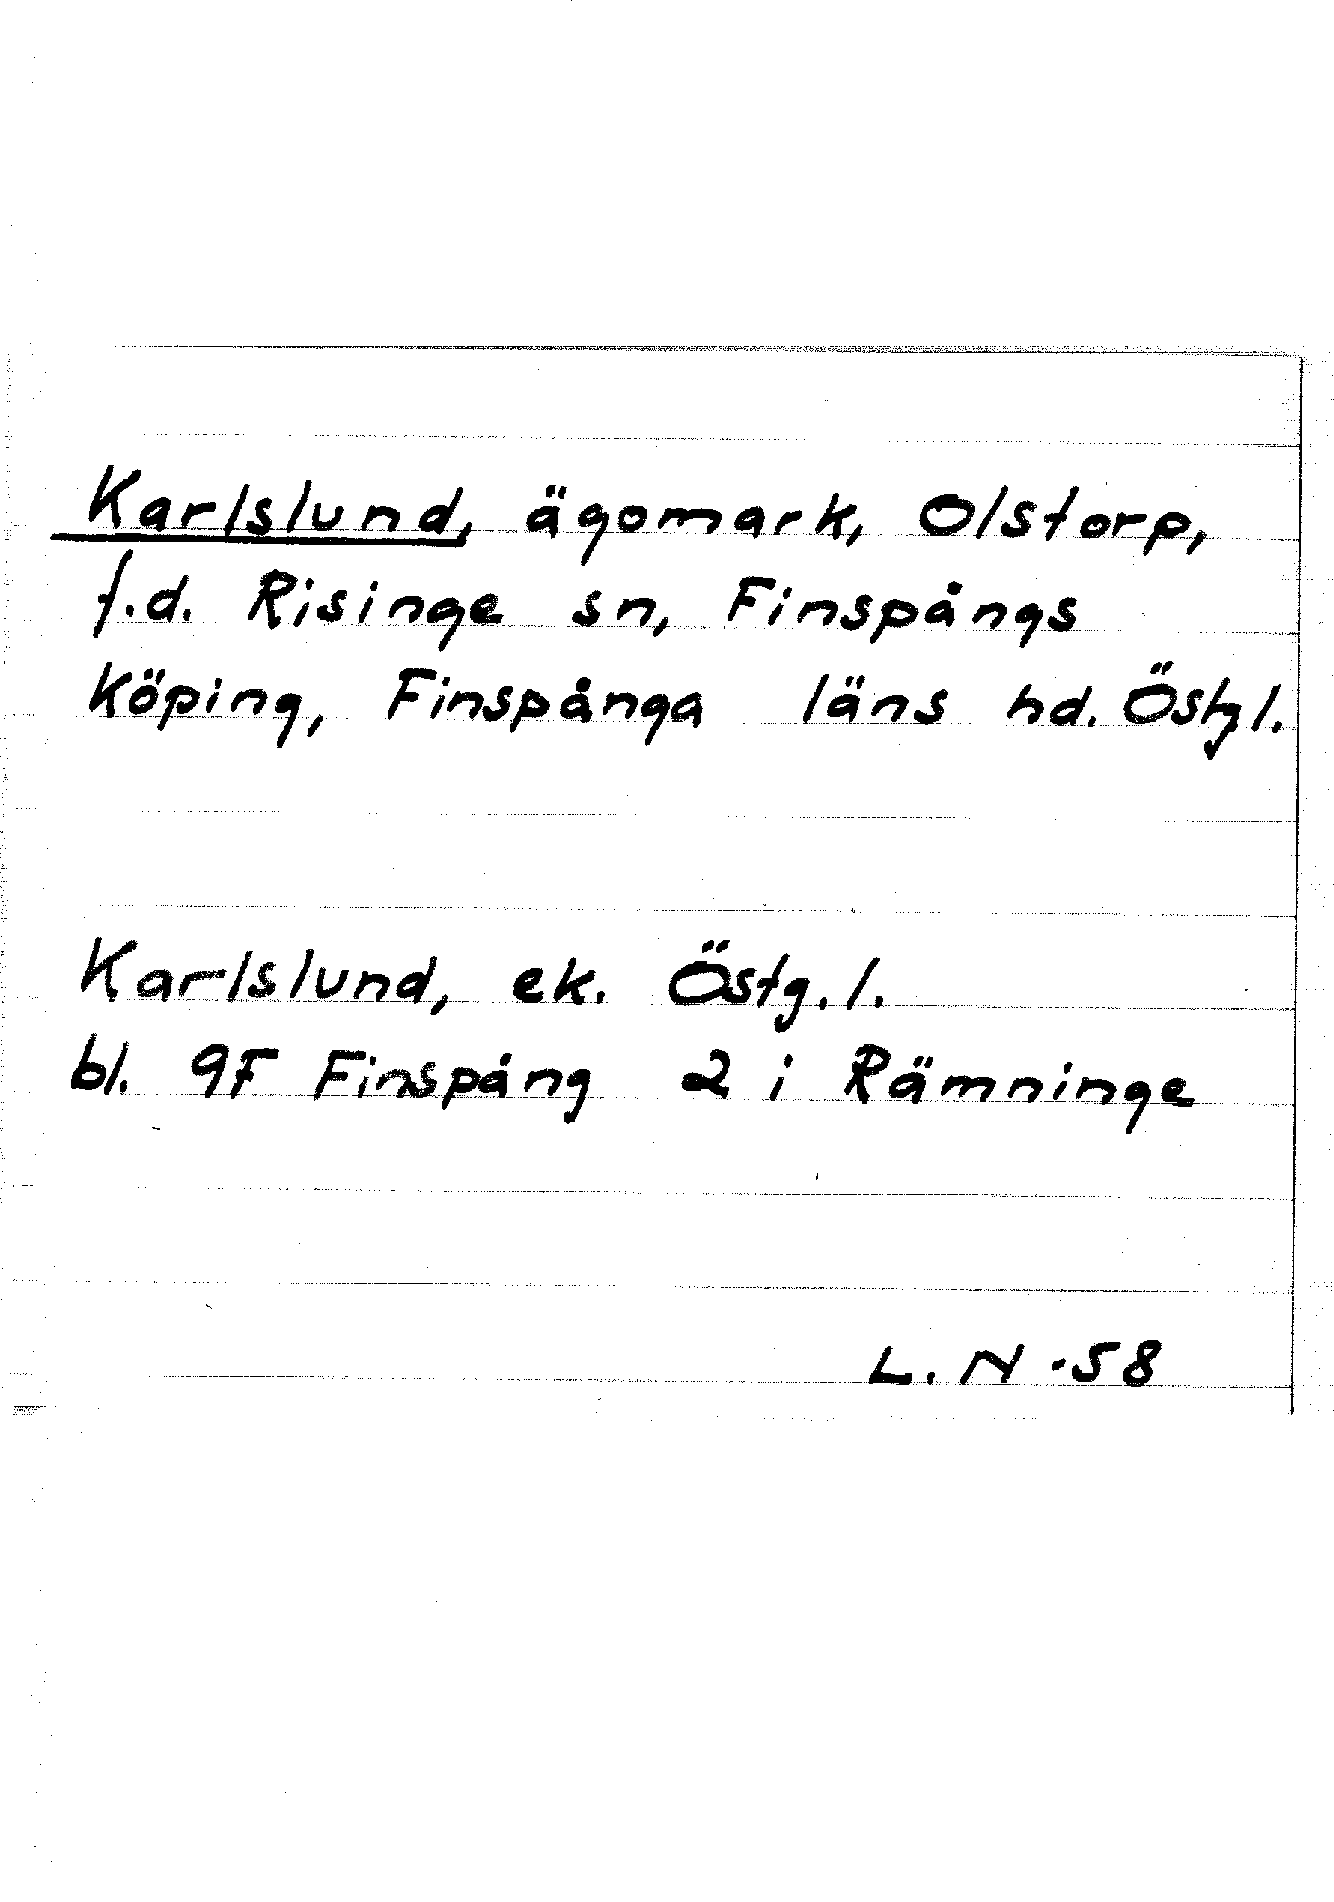 Karlslund, ägomark, Olstorp,
f.d. Risinge sn, Finspångs
Köping, Finspånga läns hd. Östgl.
Karlslund, ek. Östg.l.
bl. 9F Finspång 2 i Rämninge
L. N -58